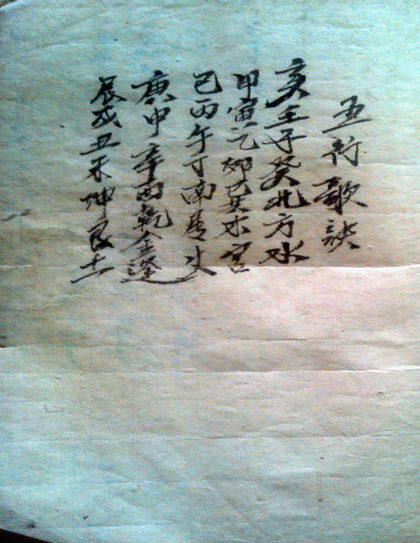 五行歌訣
亥壬子癸北方水
甲寅乙卯巽木宮
巳丙午丁南屬火
庚申辛酉乾金逢
辰戌丑未坤艮土